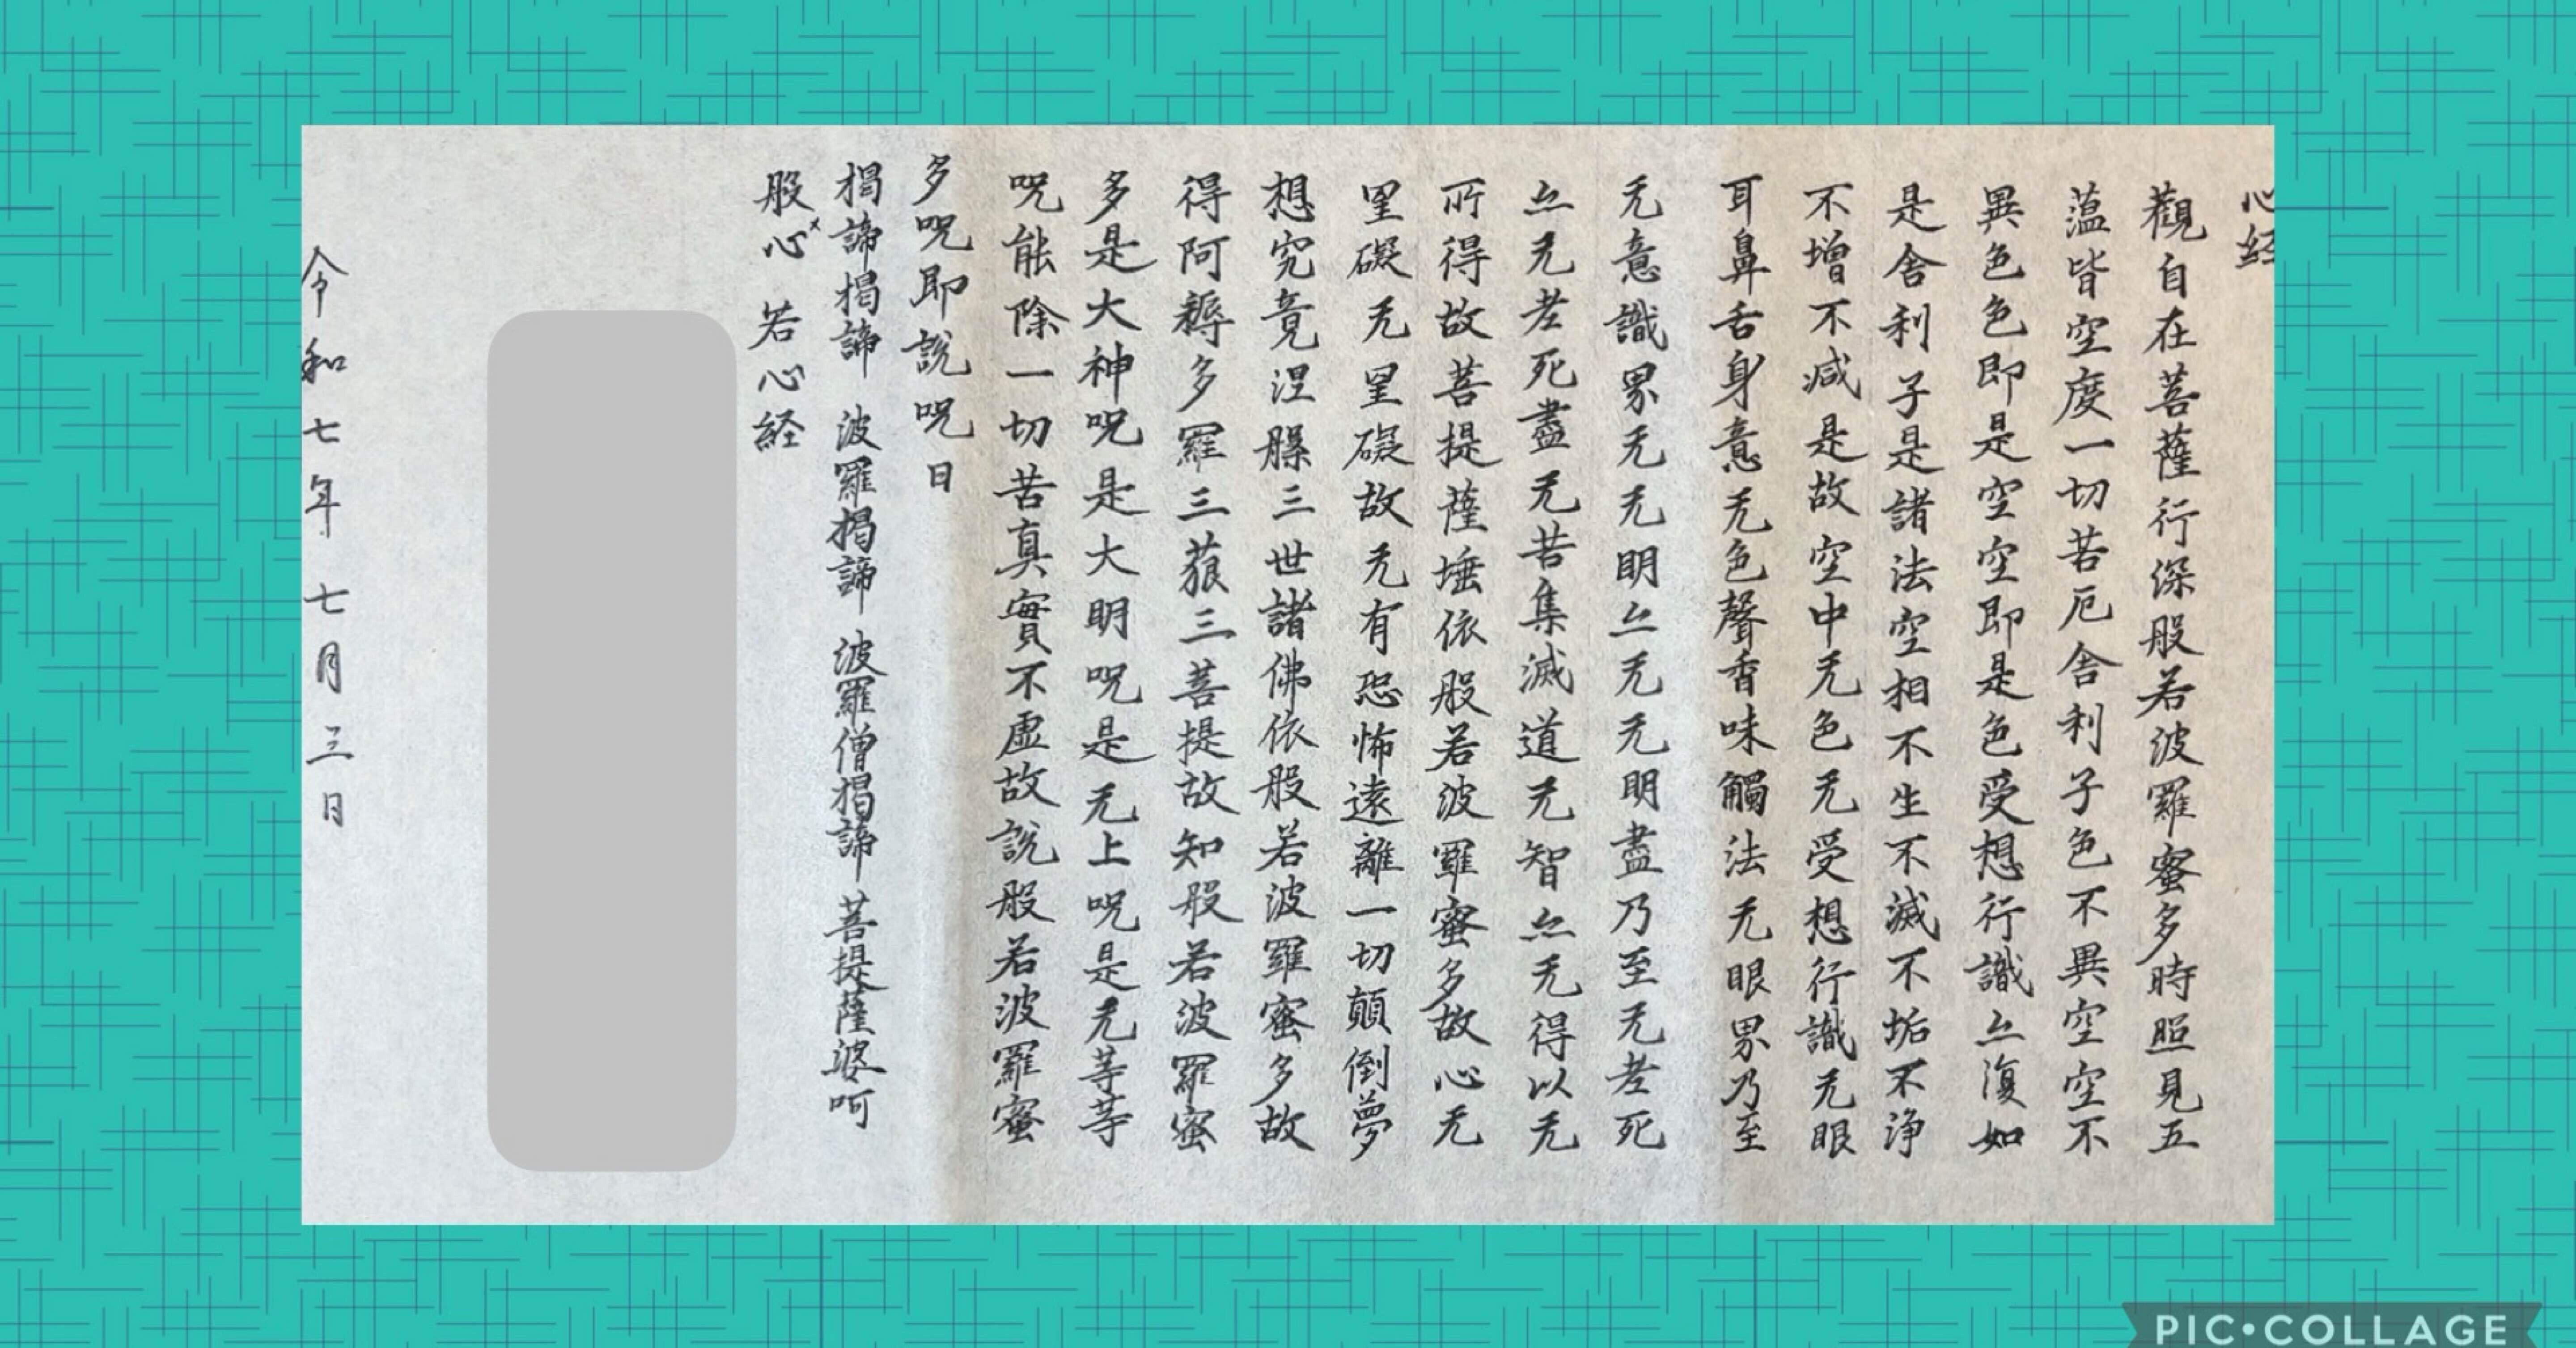 心経
觀自在菩薩行深般若波羅蜜多時照見五
薀皆空度一切苦厄舎利子色不異空空不
異色色即是空空即是色受想行識亠復如
是舎利子是諸法空相不生不滅不垢不浄
不増不減是故空中无色无受想行識无眼
耳鼻舌身意无色聲香味觸法无眼界乃至
无意識界无无明亠无无明盡乃至无老死
亠无老死盡无苦集滅道无智亠无得以无
所得故菩提薩埵依般若波羅蜜多故心无
罣礙无罣礙故无有恐怖遠離一切顛倒夢
想究竟涅槃三世諸佛依般若波羅蜜多故
得阿耨多羅三藐三菩提故知般若波羅蜜
多是大神呪是大明呪是无上呪是无等等
呪能除一切苦真實不虚故説般若波羅蜜
多呪即説呪曰
掲諦掲諦 波羅掲諦 波羅僧掲諦 菩提薩婆呵
般心 若心経
令和七年 七月三日
PIC•COLLAGE